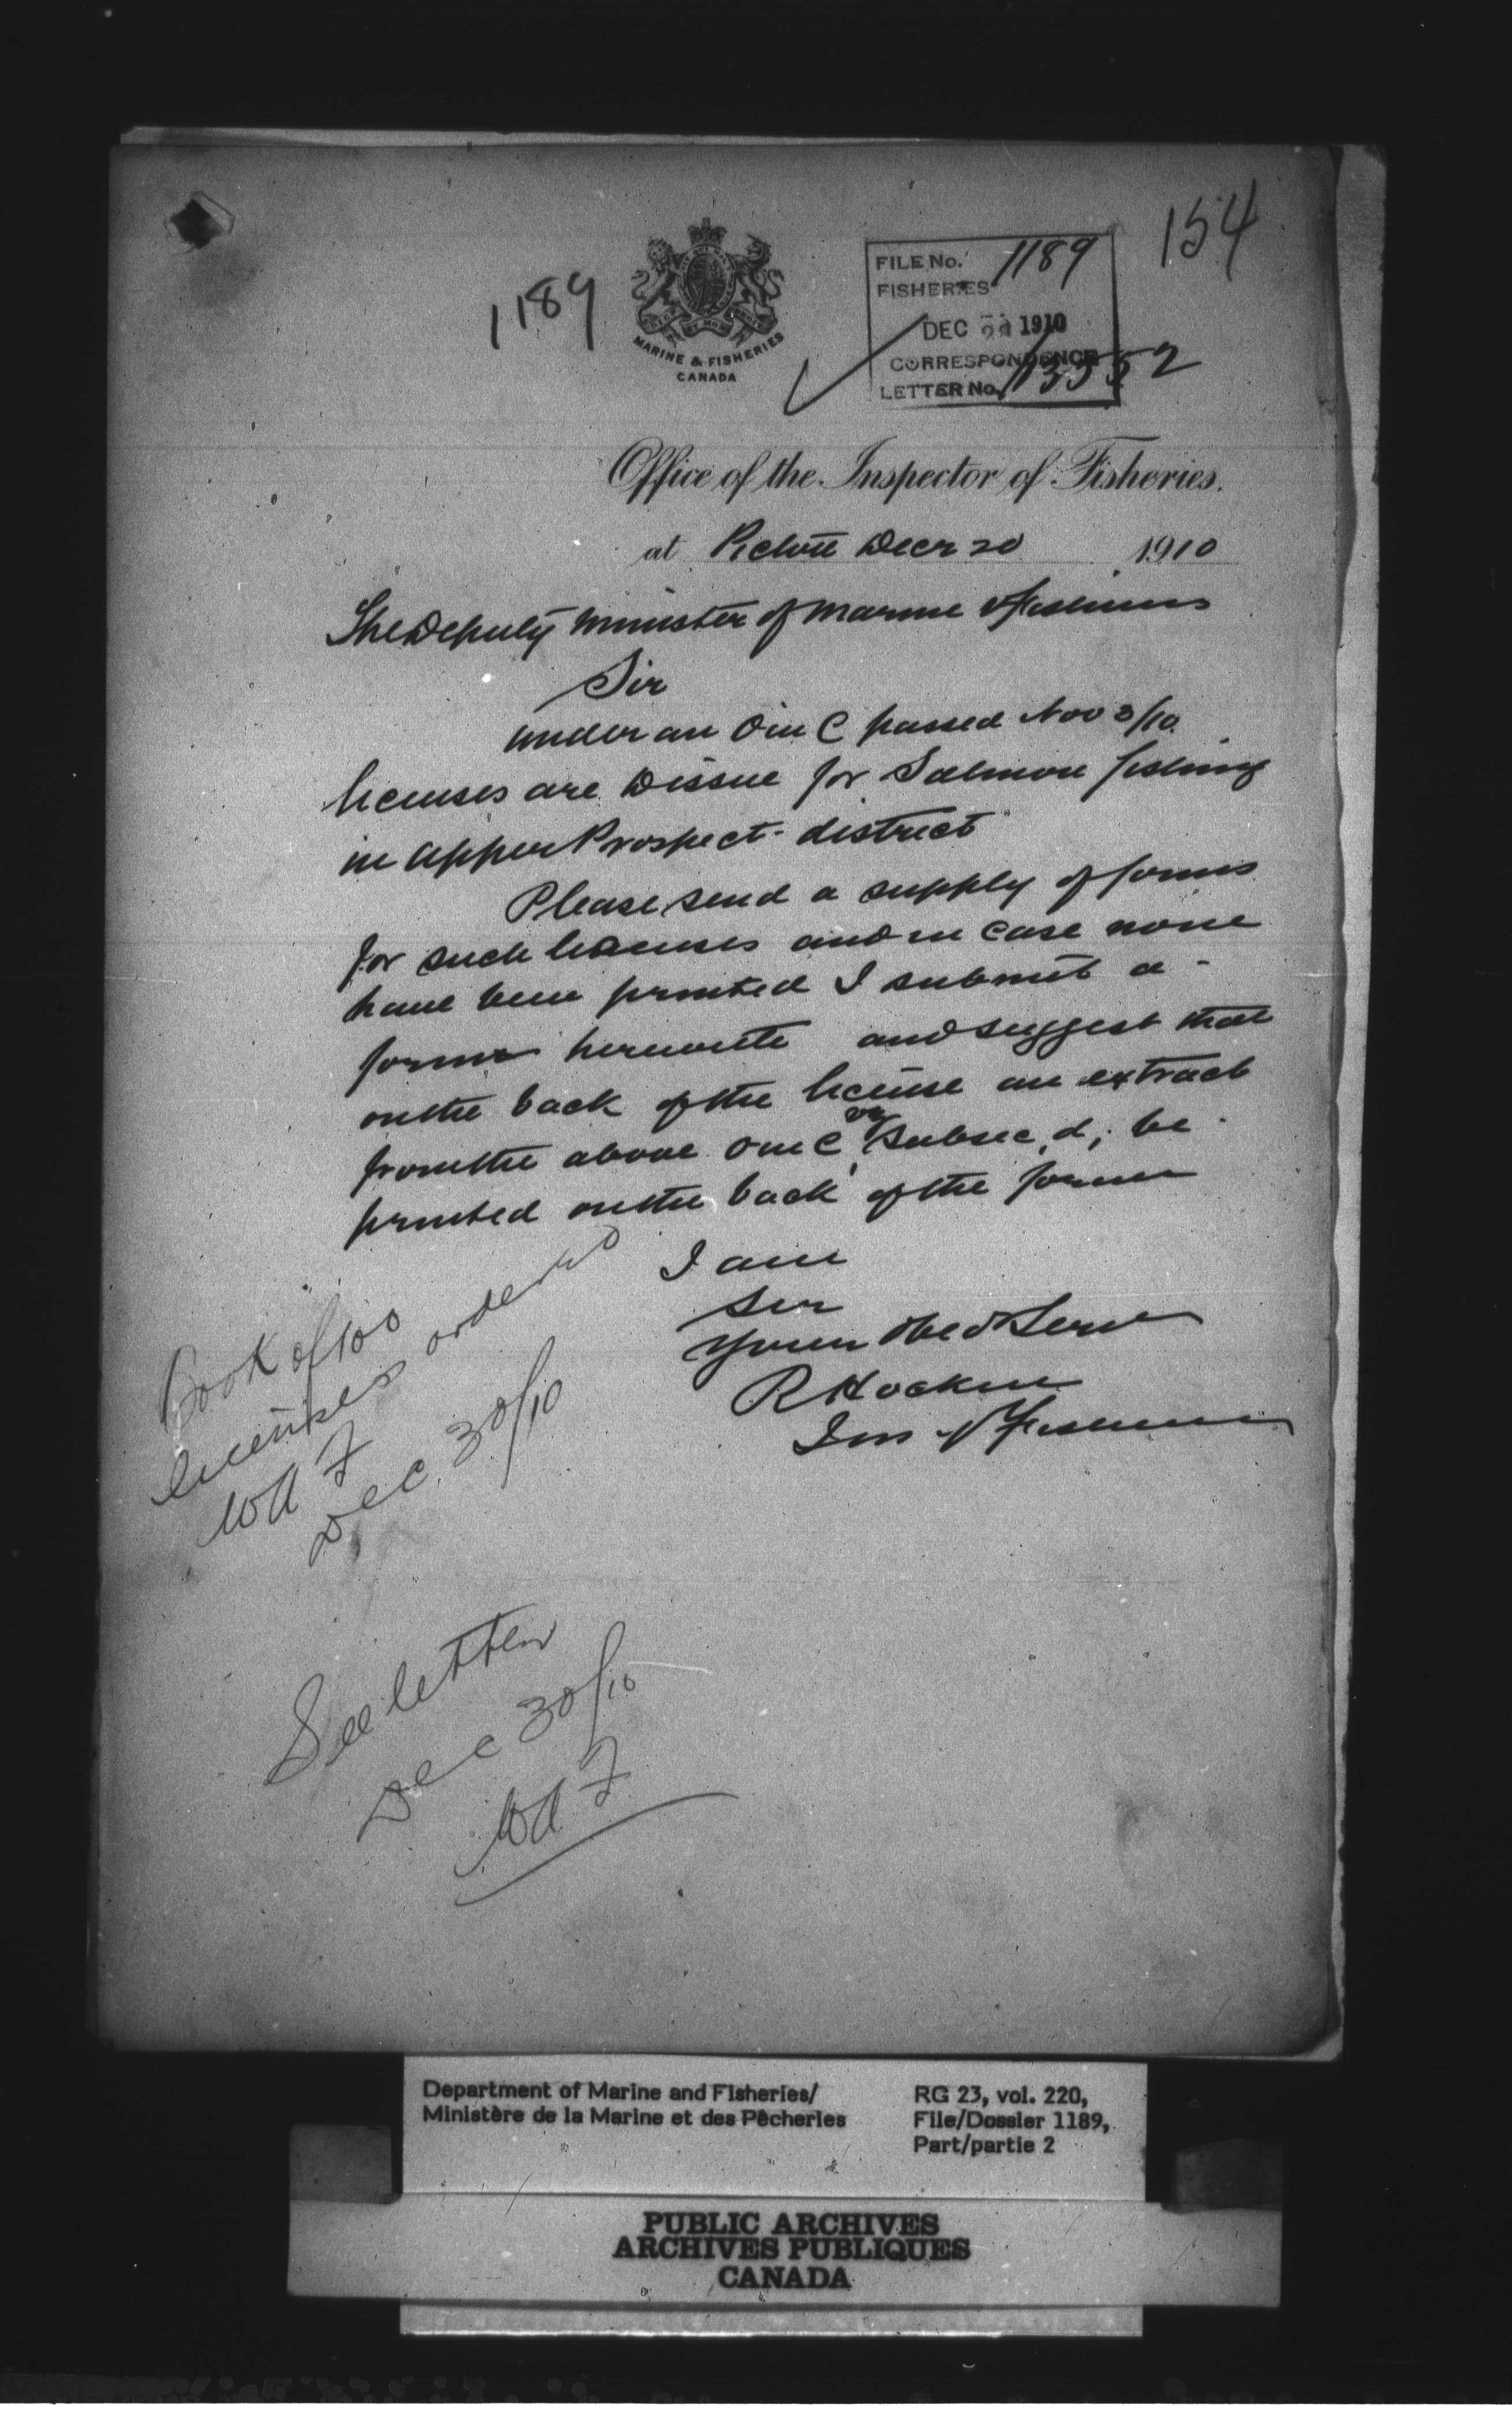 154
1189
MARINE & FISHERIES
CANADA
FILE No. 1189
FISHERIES
DEC 1910
CORRESPONDENCE
LETTER No. 13552
Office of the Inspector of Fisheries.
at Pictou Decr 20 1910
The Deputy Minister of Marine & Fisheries
Sir
Under an O in C passed Nov 3/10
licenses are to issue for Salmon fishing
in Upper Prospect district
Please send a supply of forms
for such licenses and in case none
have been printed I submit a
form herewith and suggest that
on the back of the license an extract
from the above O in C, subsec, d, be
printed on the back of the form
I am
Sir
Your Obed Serv
R Hockin
Ins of Fisheries
Book of 100
licenses ordered
Dec. 30/10
See letter
Dec 30/10
Department of Marine and Fisheries/
Ministère de la Marine et des Pêcheries
RG 23, vol. 220,
File/Dossier 1189,
Part/partie 2
PUBLIC ARCHIVES
ARCHIVES PUBLIQUES
CANADA